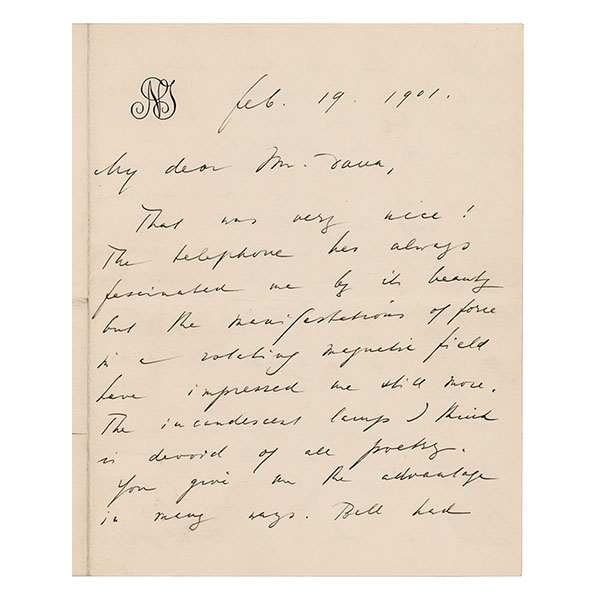 Feb. 19. 1901.
My dear Mr. Dana,
That was very nice!
The telephone has always
fascinated me by its beauty
but the manifestations of force
in a rotating magnetic field
have impressed me still more.
The incandescent lamp I think
is devoid of all poetry.
You give me the advantage
in many ways. Bell had